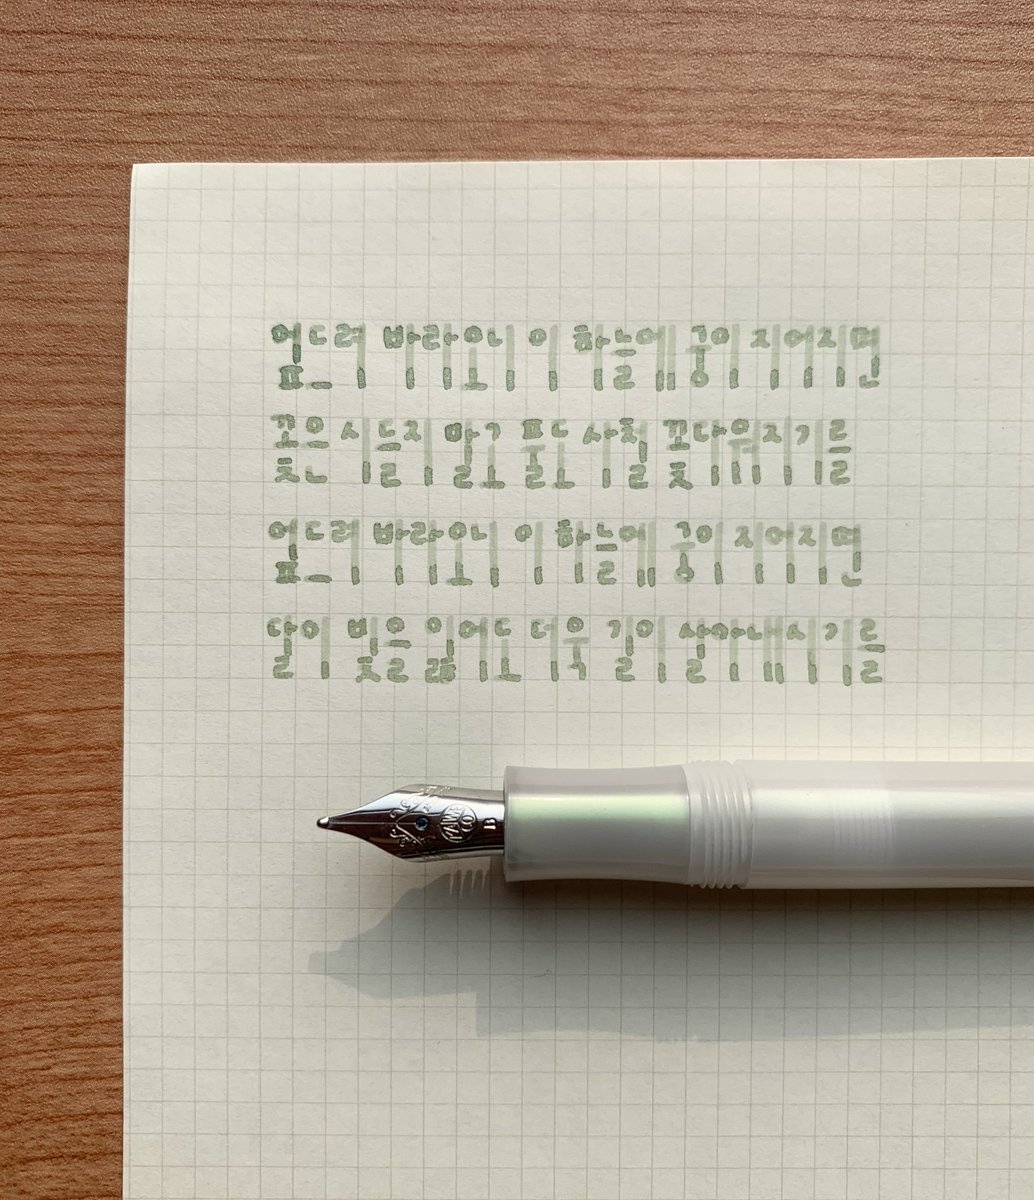 엎드려 바라오니 이 하늘에 공이 지어지면
꽃은 시들지 말고 풀도 사철 꽃다워지기를
엎드려 바라오니 이 하늘에 공이 지어지면
달이 빛을 잃어도 더욱 길이 살아내시기를
KAWE
CO
B